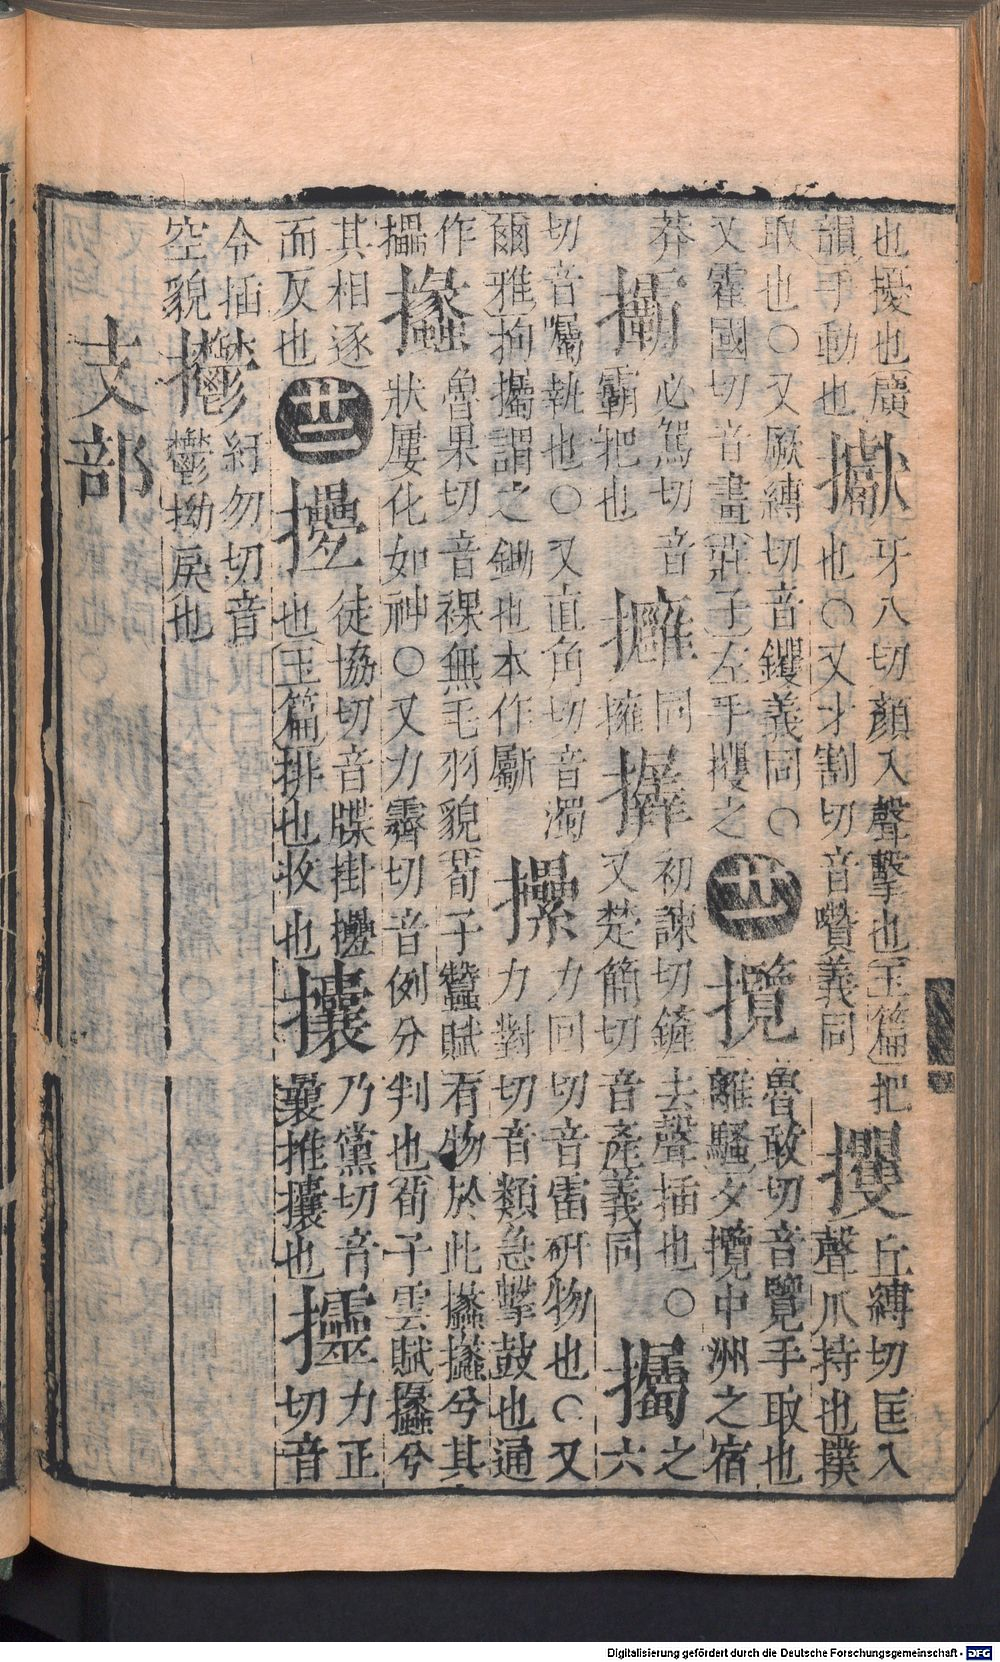 也擾也廣韻手動也 牙八切顏入聲擊也玉篇把也○又才割切音囋義同 攫 丘縛切匡入聲爪持也撲
取也○又厥縛切音钁義同○又霍國切音畫莊子左手攫之 廿一 攬 魯敢切音覽手取也離騷夕攬中洲之宿
莽 必駕切音霸靶也 同擁 初諫切鏟去聲插也○又楚簡切音產義同 之六
切音囑執也○又直角切音濁爾雅拘謂之鋤也本作斸 力回切音雷研物也○又力對切音類急擊鼓也通
作攂 攭 魯果切音裸無毛羽貌荀子蠶賦有物於此攭攭兮其狀屢化如神○又力霽切音例分判也荀子雲賦攭兮
其相逐而反也 廿二 㩹 徒協切音牒掛㩹也玉篇排也收也 攮 乃黨切音曩推攮也 力正切音
令插空貌 紆勿切音鬱鬱拗戾也
支部
Digitalisierung gefördert durch die Deutsche Forschungsgemeinschaft - DFG